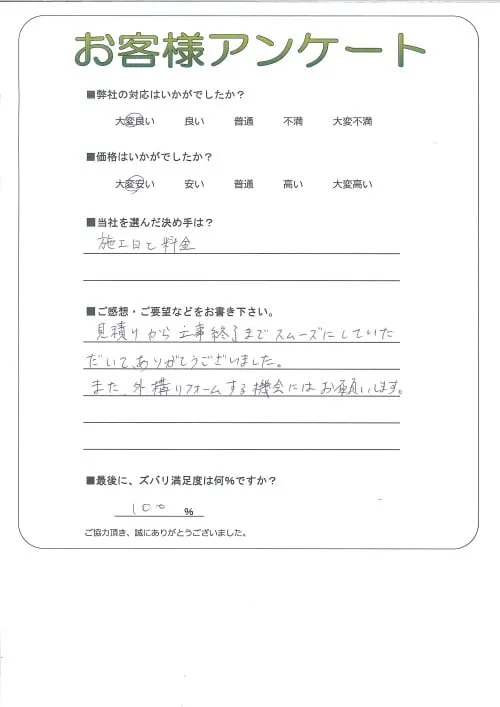 お客様アンケート
■弊社の対応はいかがでしたか？
大変良い 良い 普通 不満 大変不満
■価格はいかがでしたか？
大変安い 安い 普通 高い 大変高い
■当社を選んだ決め手は？
施工日と料金
■ご感想・ご要望などをお書き下さい。
見積りから工事終了までスムーズにしていた
だいて、ありがとうございました。
また、外構リフォームする機会にはお願いします。
■最後に、ズバリ満足度は何%ですか？
100 %
ご協力頂き、誠にありがとうございました。